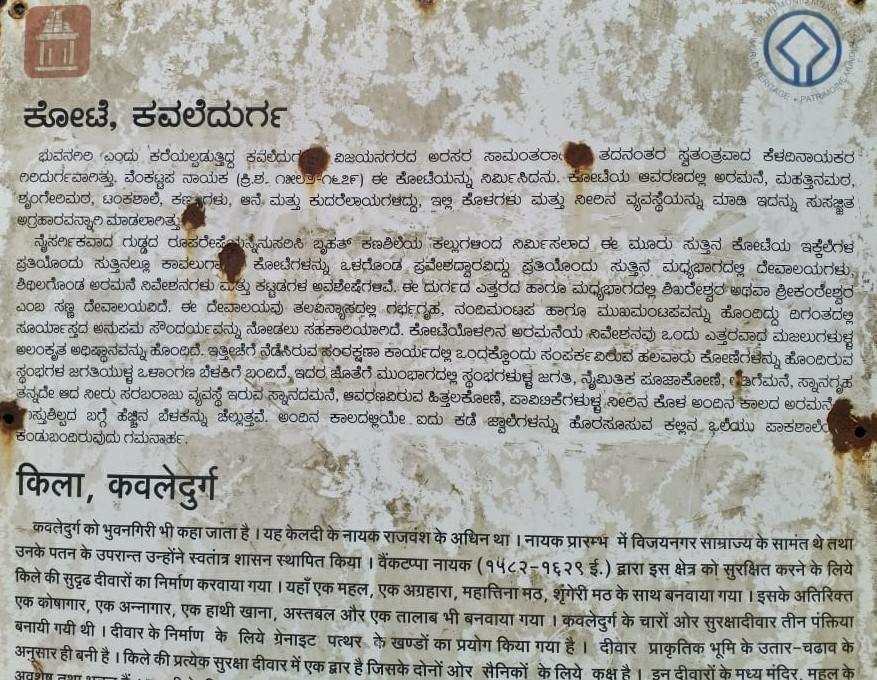 ಕೋಟೆ, ಕವಲೆದುರ್ಗ
ಭುವನಗಿರಿ ಎಂದು ಕರೆಯಲ್ಪಡುತ್ತಿದ್ದ ವಿಜಯನಗರದ ಅರಸರ ತದನಂತರ ಸ್ವತಂತ್ರವಾದ ಕೆಳದಿನಾಯಕರ
ಗಿರಿದುರ್ಗವಾಗಿತ್ತು. ವೆಂಕಟ್ಟಪ ನಾಯಕ (ಕ್ರಿ.ಶ. ೧೫೮೨-೧೬೨೯) ಈ ಕೋಟೆಯನ್ನು ನಿರ್ಮಿಸಿದನು. ಕೋಟೆಯ ಆವರಣದಲ್ಲಿ ಅರಮನೆ, ಮಹತ್ತಿನಮಠ,
ಶೃಂಗೇರಿಮಠ, ಟಂಕಶಾಲೆ, ಆನೆ ಮತ್ತು ಕುದರೆಲಾಯಗಳಿದ್ದು, ಇಲ್ಲಿ ಕೊಳಗಳು ಮತ್ತು ನೀರಿನ ವ್ಯವಸ್ಥೆಯನ್ನು ಮಾಡಿ ಇದನ್ನು ಸುಸಜ್ಜಿತ
ಅಗ್ರಹಾರವನ್ನಾಗಿ ಮಾಡಲಾಗಿತ್ತು.
ನೈಸರ್ಗಿಕವಾದ ಗುಡ್ಡದ ರೂಪರೇಷೆಯನ್ನನುಸರಿಸಿ ಬೃಹತ್ ಕಣಶಿಲೆಯ ಕಲ್ಲುಗಳಿಂದ ನಿರ್ಮಿಸಲಾದ ಈ ಮೂರು ಸುತ್ತಿನ ಕೋಟೆಯ ಇಕ್ಕೆಲೆಗಳ
ಪ್ರತಿಯೊಂದು ಸುತ್ತಿನಲ್ಲೂ ಕೋಣೆಗಳನ್ನು ಒಳಗೊಂಡ ಪ್ರವೇಶದ್ವಾರವಿದ್ದು ಪ್ರತಿಯೊಂದು ಸುತ್ತಿನ ಮಧ್ಯಭಾಗದಲ್ಲಿ ದೇವಾಲಯಗಳು,
ಶಿಥಿಲಗೊಂಡ ಅರಮನೆ ನಿವೇಶನಗಳು ಮತ್ತು ಕಟ್ಟಡಗಳ ಅವಶೇಷಗಳಿವೆ. ಈ ದುರ್ಗದ ಎತ್ತರದ ಹಾಗೂ ಮಧ್ಯಭಾಗದಲ್ಲಿ ಶಿಖರೇಶ್ವರ ಅಥವಾ ಶ್ರೀಕಂಠೇಶ್ವರ
ಎಂಬ ಸಣ್ಣ ದೇವಾಲಯವಿದೆ. ಈ ದೇವಾಲಯವು ತಲವಿನ್ಯಾಸದಲ್ಲಿ ಗರ್ಭಗೃಹ, ನಂದಿಮಂಟಪ ಹಾಗೂ ಮುಖಮಂಟಪವನ್ನು ಹೊಂದಿದ್ದು ದಿಗಂತದಲ್ಲಿ
ಸೂರ್ಯಾಸ್ತದ ಅನುಪಮ ಸೌಂದರ್ಯವನ್ನು ನೋಡಲು ಸಹಕಾರಿಯಾಗಿದೆ. ಕೋಟೆಯೊಳಗಿನ ಅರಮನೆಯ ನಿವೇಶನವು ಒಂದು ಎತ್ತರವಾದ ಮಜಲುಗಳುಳ್ಳ
ಅಲಂಕೃತ ಅಧಿಷ್ಠಾನವನ್ನು ಹೊಂದಿದೆ. ಇತ್ತೀಚೆಗೆ ನೆಡೆಸಿರುವ ಸಂರಕ್ಷಣಾ ಕಾರ್ಯದಲ್ಲಿ ಒಂದಕ್ಕೊಂದು ಸಂಪರ್ಕವಿರುವ ಹಲವಾರು ಕೋಣೆಗಳನ್ನು ಹೊಂದಿರುವ
ಸ್ಥಂಭಗಳ ಜಗತಿಯುಳ್ಳ ಒಳಾಂಗಣ ಬೆಳಕಿಗೆ ಬಂದಿದೆ. ಇದರ ಜೊತೆಗೆ ಮುಂಭಾಗದಲ್ಲಿ ಸ್ಥಂಭಗಳುಳ್ಳ ಜಗತಿ, ನೈಮಿತಿಕ ಪೂಜಾಕೋಣೆ, ಸ್ನಾನಗೃಹ
ತನ್ನದೇ ಆದ ನೀರು ಸರಬರಾಜು ವ್ಯವಸ್ಥೆ ಇರುವ ಸ್ನಾನದಮನೆ, ಆವರಣವಿರುವ ಹಿತ್ತಲಕೋಣೆ, ಪಾವಟಿಕೆಗಳುಳ್ಳ ನೀರಿನ ಕೊಳ ಅಂದಿನ ಕಾಲದ
ಬಗ್ಗೆ ಹೆಚ್ಚಿನ ಬೆಳಕನ್ನು ಚೆಲ್ಲುತ್ತವೆ. ಅಂದಿನ ಕಾಲದಲ್ಲಿಯೇ ಐದು ಕಡೆ ಜ್ವಾಲೆಗಳನ್ನು ಹೊರಸೂಸುವ ಕಲ್ಲಿನ ಒಲೆಯು
ಕಂಡುಬಂದಿರುವುದು ಗಮನಾರ್ಹ.
किला, कवलेदुर्ग
कवलेदुर्ग को भुवनगिरी भी कहा जाता है । यह केलदी के नायक राजवंश के अधिन था । नायक प्रारम्भ में विजयनगर साम्राज्य के सामंत थे तथा
उनके पतन के उपरान्त उन्होंने स्वतांत्र शासन स्थापित किया । वैंकटप्पा नायक (१५८२-१६२९ ई.) द्वारा इस क्षेत्र को सुरक्षित करने के लिये
किले की सुदृढ दीवारों का निर्माण करवाया गया । यहाँ एक महल, एक अग्रहारा, महात्तिना मठ, शृंगेरी मठ के साथ बनवाया गया । इसके अतिरिक्त
एक कोषागार, एक अन्नागार, एक हाथी खाना, अस्तबल और एक तालाब भी बनवाया गया । कवलेदुर्ग के चारों ओर सुरक्षादीवार तीन पंक्तिया
बनायी गयी थी । दीवार के निर्माण के लिये ग्रेनाइट पत्थर के खण्डों का प्रयोग किया गया है । दीवार प्राकृतिक भूमि के उतार-चढाव के
अनुसार ही बनी है । किले की प्रत्येक सुरक्षा दीवार में एक द्वार है जिसके दोनों ओर सैनिकों के लिये कक्ष है । इन दीवारों के मध्य मंदिर, महल के